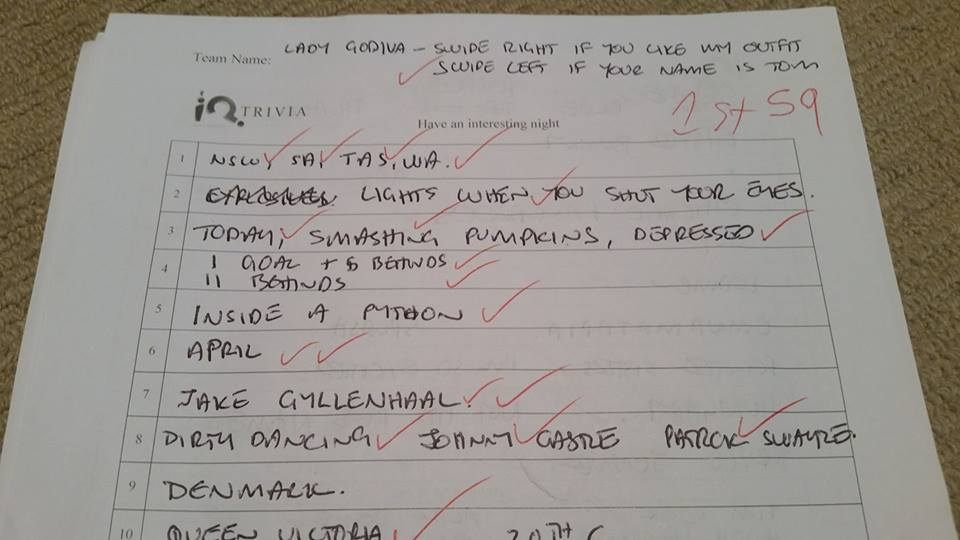 Team Name: LADY GODIVA - SWIPE RIGHT IF YOU LIKE MY OUTFIT
SWIPE LEFT IF YOUR NAME IS TOM
iQ. TRIVIA
Have an interesting night
1st 59
1 NSW, SA, TAS, WA.
2 LIGHTS WHEN YOU SHUT YOUR EYES.
3 TODAY, SMASHING PUMPKINS, DEPRESSED
4 1 GOAL + 5 BEHINDS
11 BEHINDS
5 INSIDE A PYTHON
6 APRIL
7 JAKE GYLLENHAAL.
8 DIRTY DANCING JOHNNY CASTLE PATRCK SWAYZE.
9 DENMARK.
10 QUEEN VICTORIA 20TH